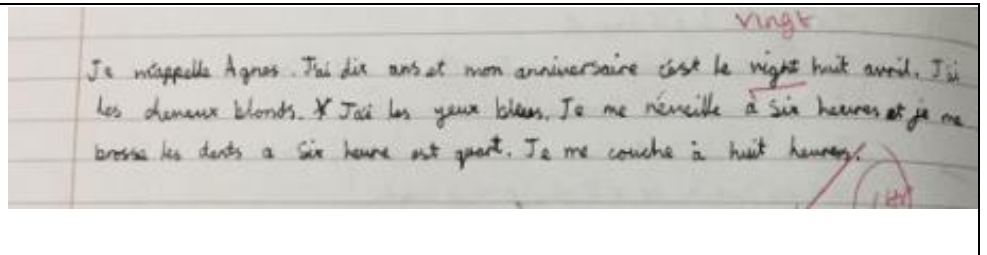 vingt
Je m'appelle Agnes. J'ai dix ans et mon anniversaire c'est le vight huit avril. J'ai
les cheveux blonds. J'ai les yeux bleus. Je me réveille à six heures et je me
brosse les dents a six heure est quart. Je me couche à huit heures.